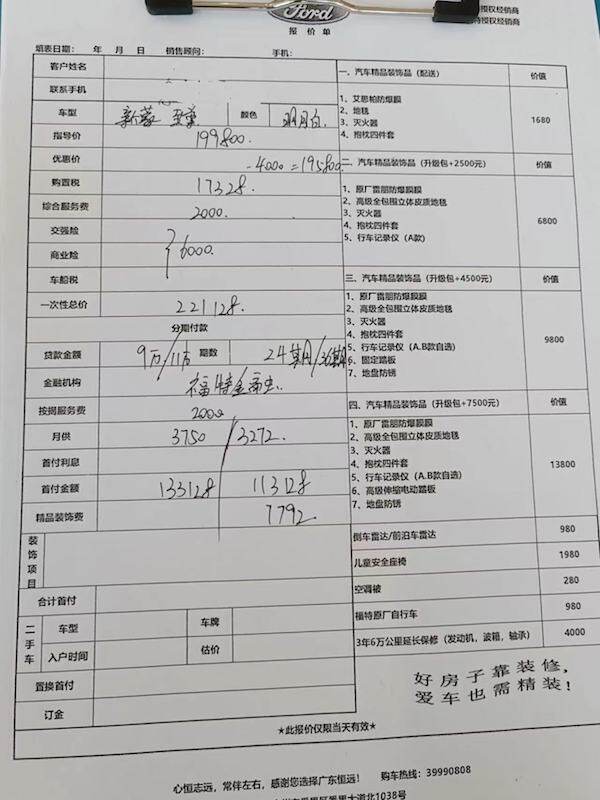 Ford
授权经销商
特授权经销商
报 价 单
填表日期： 年 月 日 销售顾问： 手机：
客户姓名
联系手机
车型 新蒙 至尊 颜色 明月白
指导价 199800.
优惠价 -4000=195800
购置税 17328
综合服务费 2000.
交强险
商业险 6000.
车船税
一次性总价 221128.
分期付款
贷款金额 9万/11万 期数 24期/36期
金融机构 福特金融
按揭服务费 2000
月供 3750/3272.
首付利息
首付金额 133128 113128
精品装饰费 7792
装饰项目
合计首付
二手车 车型 车牌
入户时间 估价
置换首付
订金
一、汽车精品装饰品（配送） 价值
1、艾思柏防爆膜
2、地毯
3、灭火器
4、抱枕四件套
1680
二、汽车精品装饰品（升级包+2500元） 价值
1、原厂雷朋防爆膜膜
2、高级全包围立体皮质地毯
3、灭火器
4、抱枕四件套
5、行车记录仪（A款）
6800
三、汽车精品装饰品（升级包+4500元） 价值
1、原厂雷朋防爆膜膜
2、高级全包围立体皮质地毯
3、灭火器
4、抱枕四件套
5、行车记录仪（A.B款自选）
6、固定踏板
7、地盘防锈
9800
四、汽车精品装饰品（升级包+7500元） 价值
1、原厂雷朋防爆膜膜
2、高级全包围立体皮质地毯
3、灭火器
4、抱枕四件套
5、行车记录仪（A.B款自选）
6、高级伸缩电动踏板
7、地盘防锈
13800
倒车雷达/前泊车雷达 980
儿童安全座椅 1980
空调被 280
福特原厂自行车 980
3年6万公里延长保修（发动机，波箱，轴承） 4000
好房子靠装修，
爱车也需精装！
★此报价仅限当天有效★
心恒志远，常伴左右，感谢您选择广东恒远！ 购车热线：39990808
大道北1038号